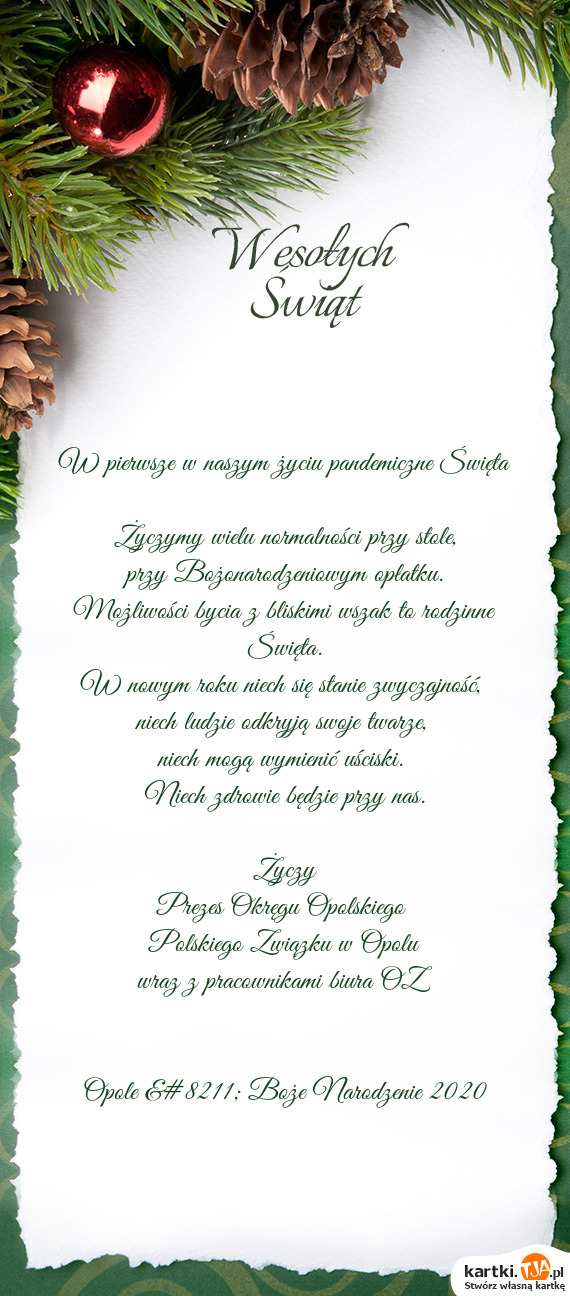 Wesołych
Świąt
W pierwsze w naszym życiu pandemiczne Święta
Życzymy wielu normalności przy stole,
przy Bożonarodzeniowym opłatku.
Możliwości bycia z bliskimi wszak to rodzinne
Święta.
W nowym roku niech się stanie zwyczajność,
niech ludzie odkryją swoje twarze,
niech mogą wymienić uściski.
Niech zdrowie będzie przy nas.
Życzy
Prezes Okręgu Opolskiego
Polskiego Związku w Opolu
wraz z pracownikami biura OZ
Opole &#8211; Boże Narodzenie 2020
kartki.TJA.pl
Stwórz własną kartkę